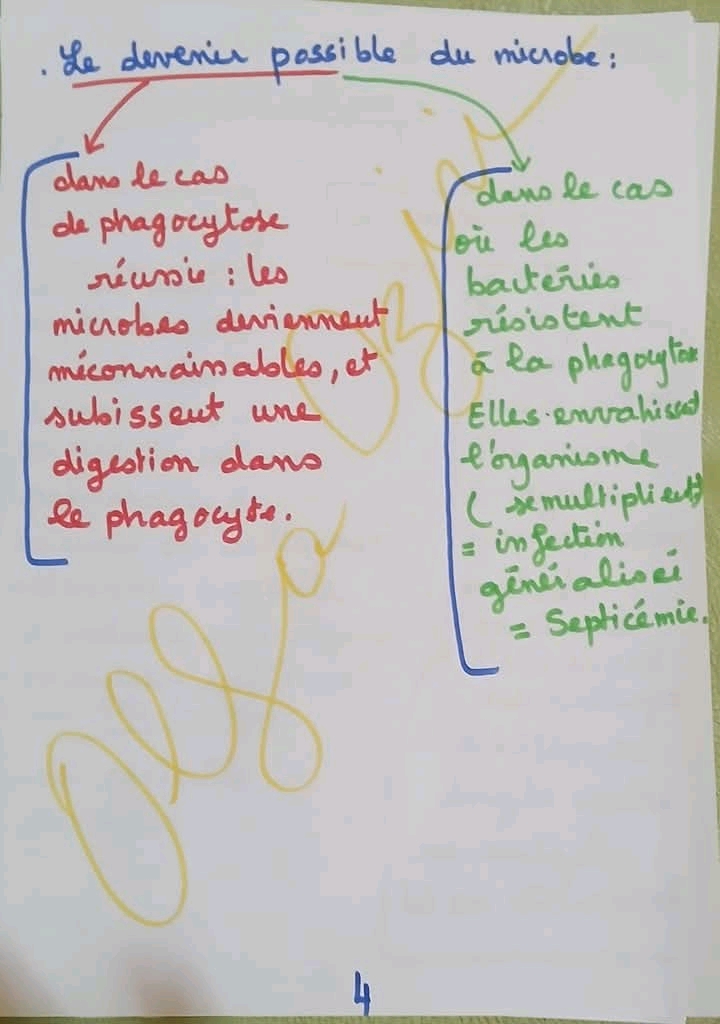 . Le devenir possible du microbe :
dans le cas
de phagocytose
réussie : les
microbes deviennent
méconnaissables, et
subissent une
digestion dans
le phagocyte.
dans le cas
où les
bactéries
résistent
à la phagocytose
Elles envahissent
l'organisme
( se multiplient)
= infection
généralisée
= Septicémie.
4